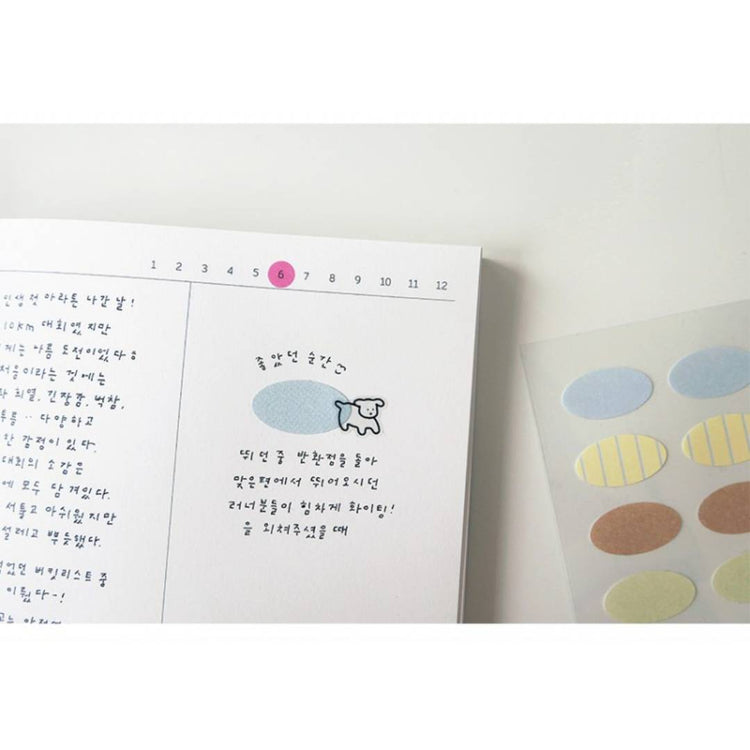 1 2 3 4 5 6 7 8 9 10 11 12
인생 첫 마라톤 나간 날!
10km 대회였지만
나름 도전이었다
처음이라는 것에는
희열, 긴장감, 벅참,
다양하고
감정이 있다.
대회의 소감은
에 모두 담겨있다.
서툴고 아쉬웠지만
설레고 뿌듯했다.
버킷리스트 중
이뤘다~!
좋았던 순간
뛰던 중 반환점을 돌아
맞은편에서 뛰어오시던
러너분들이 힘차게 화이팅!
을 외쳐주셨을 때